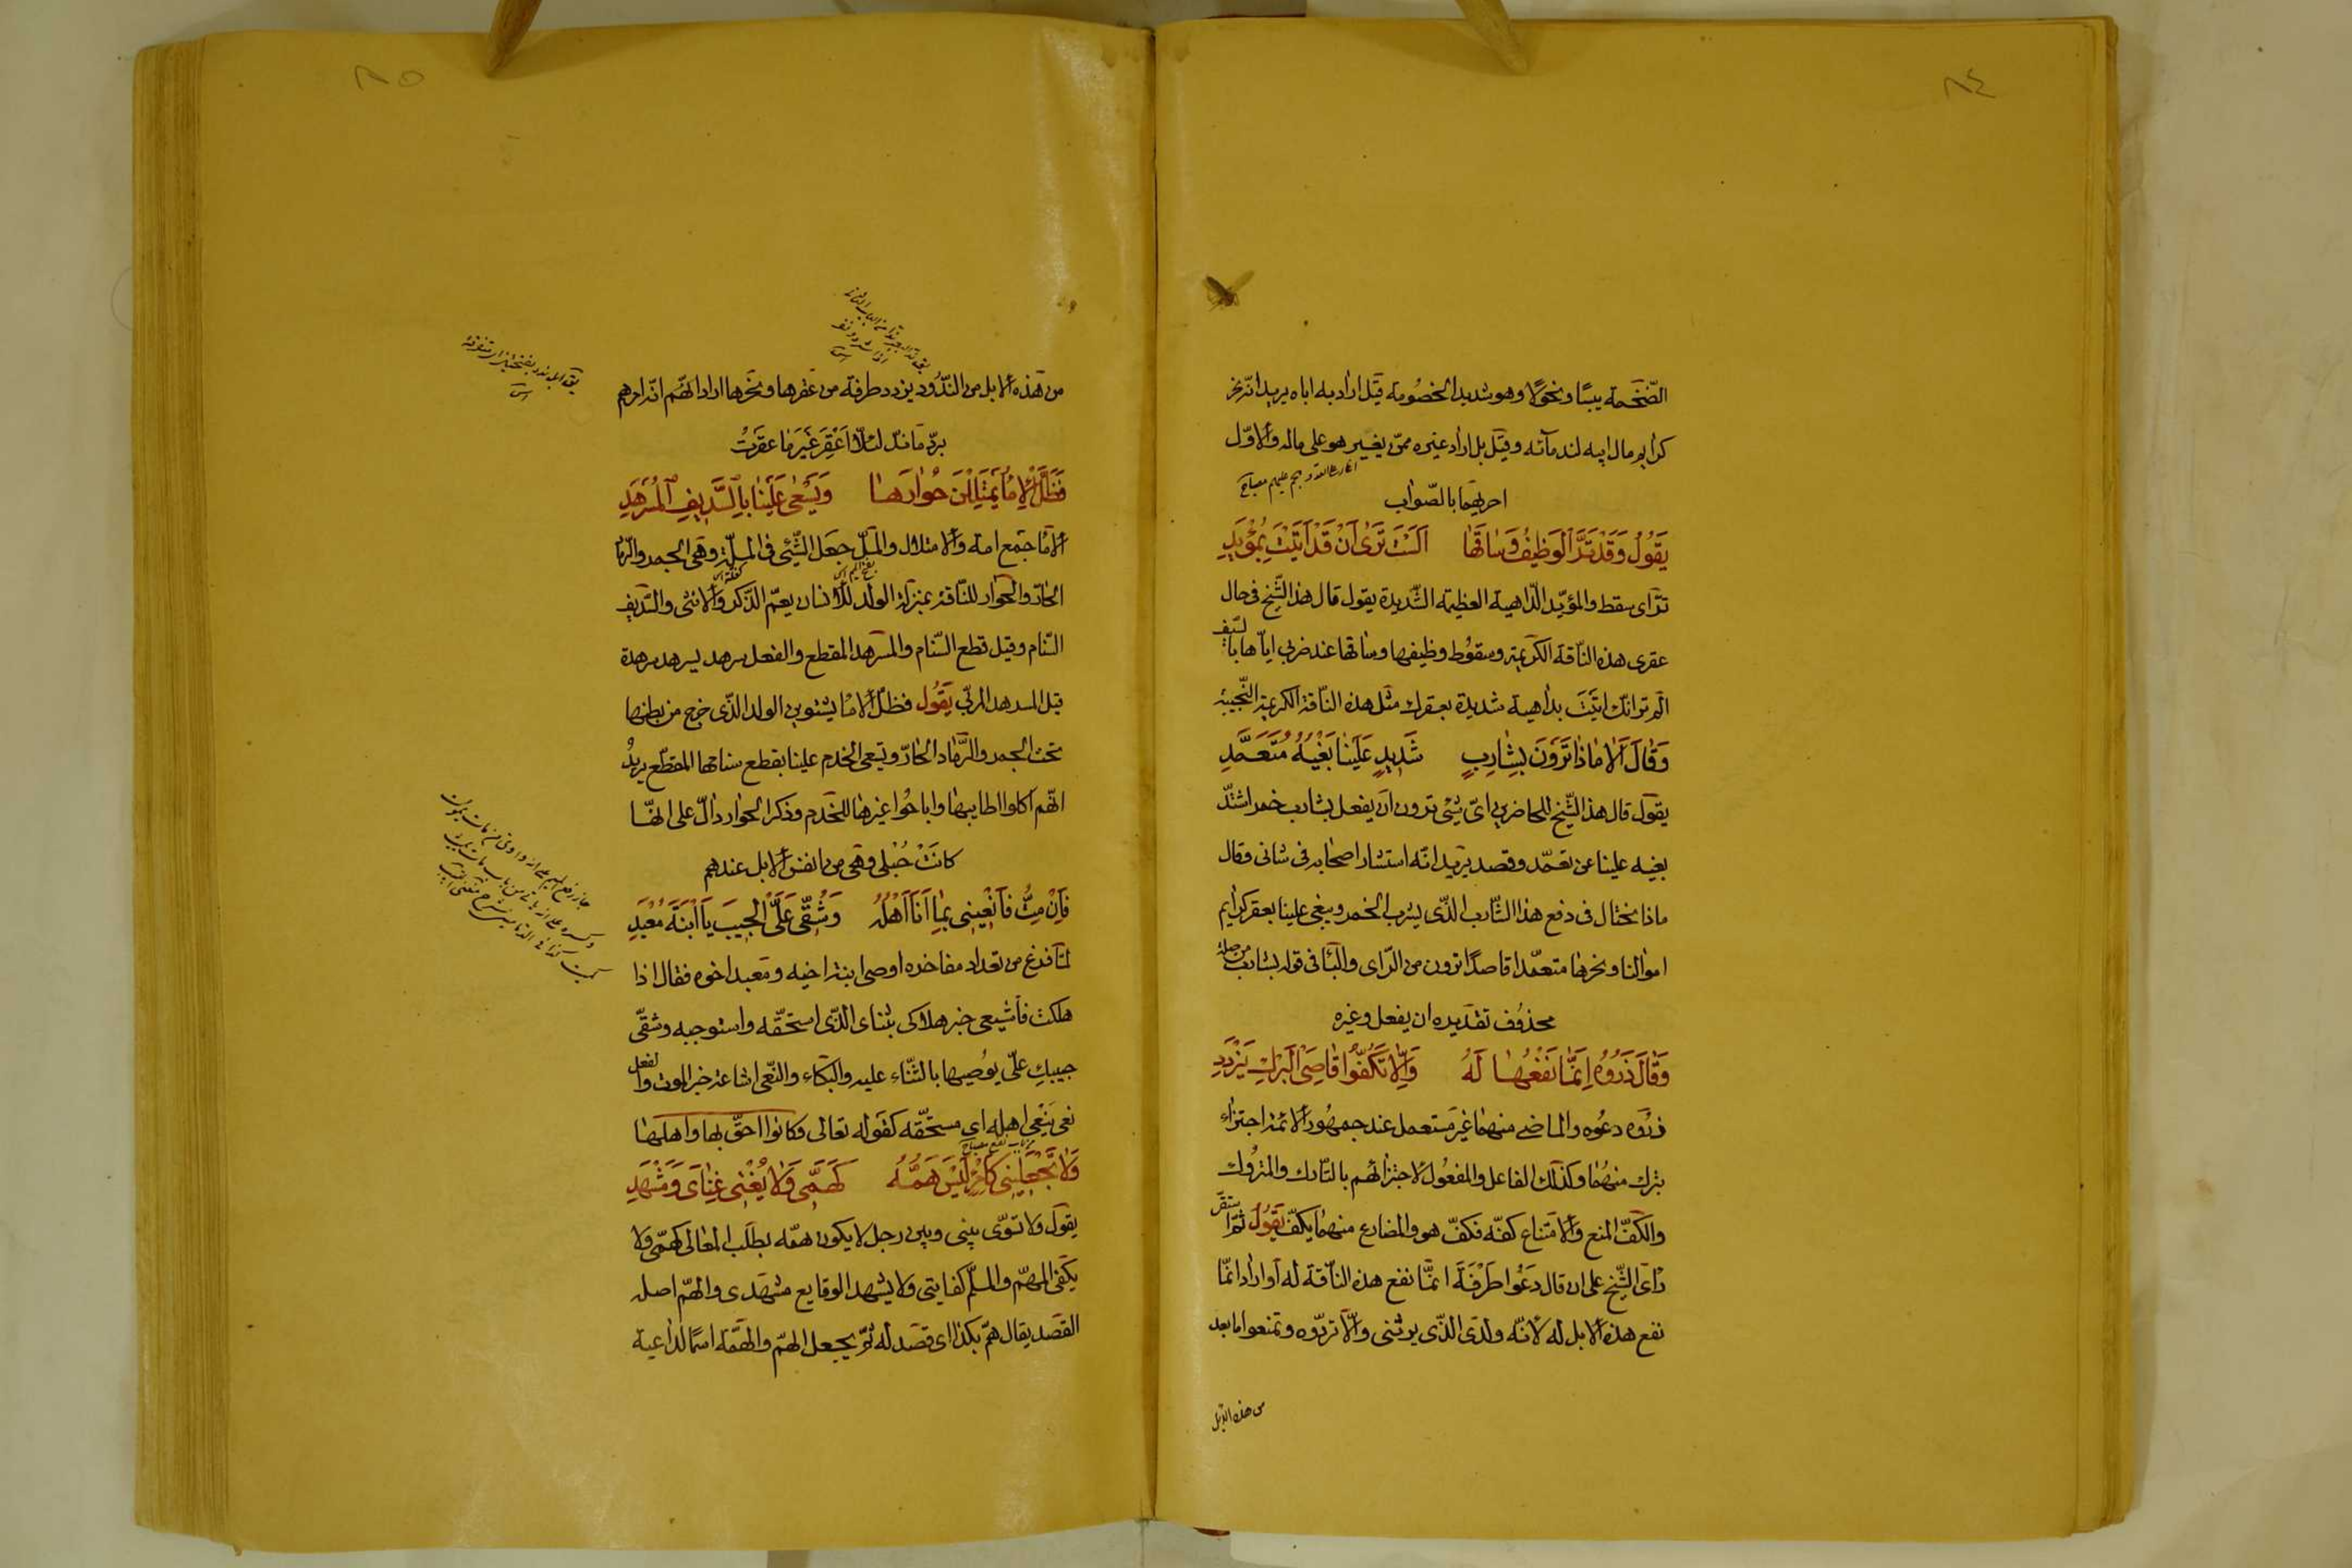 ٨٤
الضّخمة يبسًا ونحولًا وهو شديد الخصومة قيل اراد به اباه يريد انّه نحر
كرايم مال ابيه لندمآئه وقيل بل اراد غيره ممّن يغير هو على ماله والاوّل
احريهما بالصّواب
يَقُولُ وَقَدْ تَرَّ الْوَظِيفُ وَسَاقُهَا اَلَسْتَ تَرٰى اَنْ قَدْ اَتَيْتَ بِمُؤْيِدِ
ترّ اى سقط والمؤيّد الدّاهية العظيمة الشّديدة يقول قال هذا الشّيخ فى حال
عقرى هذه النّاقة الكريمة وسقوط وظيفها وساقها عند ضربى ايّاها بالسّيف
الم تر انّك اتيت بداهية شديدة بعقرك مثل هذه النّاقة الكريمة النّجيبة
وَقَالَ اَلَا مَاذَا تَرَوْنَ بِشَارِبٍ شَدِيدٍ عَلَيْنَا بَغْيُهُ مُتَعَمِّدِ
يقول قال هذا الشّيخ للحاضرين اىّ شئ ترون ان يفعل بشارب خمر اشتدّ
بغيه علينا عن تعمّد وقصد يريد انّه استشار اصحابه فى شانى وقال
ماذا نحتال فى دفع هذا الشّارب الذّى يشرب الخمر ويبغى علينا بعقر كرايم
اموالنا ونحرها متعمّدا قاصدًا ترون من الرّاى والبآ فى قوله بشارب من صلة
محذوف تقديره ان يفعل وغيره
وَقَالَ ذَرُوهُ اِنَّمَا نَفْعُهَا لَهُ وَاِلَّا تَكُفُّوا قَاصِيَ الْبَرْكِ يَزْدَدِ
ذروه دعوه والماضى منهما غير مستعمل عند جمهور الائمة اجتزاء
بترك منهما وكذلك الفاعل والمفعول لاجتزائهم بالتّارك والمتروك
والكفّ المنع والامتناع كفّه فكفّ هو والمضارع منهما يكفّ يقول ثمّ استقرّ
رأى الشّيخ على ان قال دعوا طرفة انمّا نفع هذه النّاقة له او اراد انمّا
نفع هذه الابل له لانّه ولدى الذّى يرثنى والّا تردّوه وتمنعوا ما بعد
من هذه الابل
٨٥
من هذه الابل من النّدود يزدد طرفة من عقرها ونحرها اراد انّهم انّه امرهم
بردّ ما ندّ لئلّا اعقر غير ما عقرت
فَظَلَّ الْاِمَاءُ يَمْتَلِلْنَ حُوَارَهَا وَيُسْعٰى عَلَيْنَا بِالسَّدِيفِ الْمُسَرْهَدِ
الامآ جمع امة والامتلال والملّ جعل الشّئ فى الملّة وهى الجمر والرّماد
الحارّ والحوار للنّاقة بمنزلة الولد للانسان يعمّ الذّكر والانثى والسّديف
السّنام وقيل قطع السّنام والمسرهد المقطع والفعل سرهد يسرهد سرهدة
قيل المسرهد المربّى يقول فظلّ الامآ يشتوين الولد الذّى خرج من بطنها
تحت الجمر والرّماد الحارّ ويسعى الخدم علينا بقطع سنامها المقطّع يريد
انّهم اكلوا اطايبها واباحوا غيرها للخدم وذكر الحوار دالّ على انهّا
كانت حبلى وهى من انفس الابل عندهم
فَاِنْ مِتُّ فَانْعِينِى بِمَا اَنَا اَهْلُهُ وَشُقِّى عَلَيَّ الْجَيْبَ يَا ابْنَةَ مَعْبَدِ
لمّا فرغ من تعداد مفاخره اوصى ابنة اخيه ومعبد اخوه فقال اذا
هلكت فاشيعى خبر هلاكى بثناى الذّى استحقّه واستوجبه وشقّى
جيبك علىّ يوصيها بالثّناء عليه والبكاء والنّعى اشاعة خبر الموت والفعل
نعى ينعى اهله اى مستحقّه كقوله تعالى وكانوا احقّ بها واهلها
وَلَا تَجْعَلِينِى كَامْرِئٍ لَيْسَ هَمُّهُ كَهَمِّى وَلَا يُغْنِى غِنَاىَ وَمَشْهَدِى
يقول ولا تسوّى بينى وبين رجل لا يكون همّه بطلب المعالى كهمّى ولا
يكفى المهمّ والملمّ كفايتى ولا يشهد الوقايع مشهدى والهمّ اصله
القصد يقال همّ بكذا اى قصد له ثمّ يجعل الهمّ والهمّة اسمًا لداعية